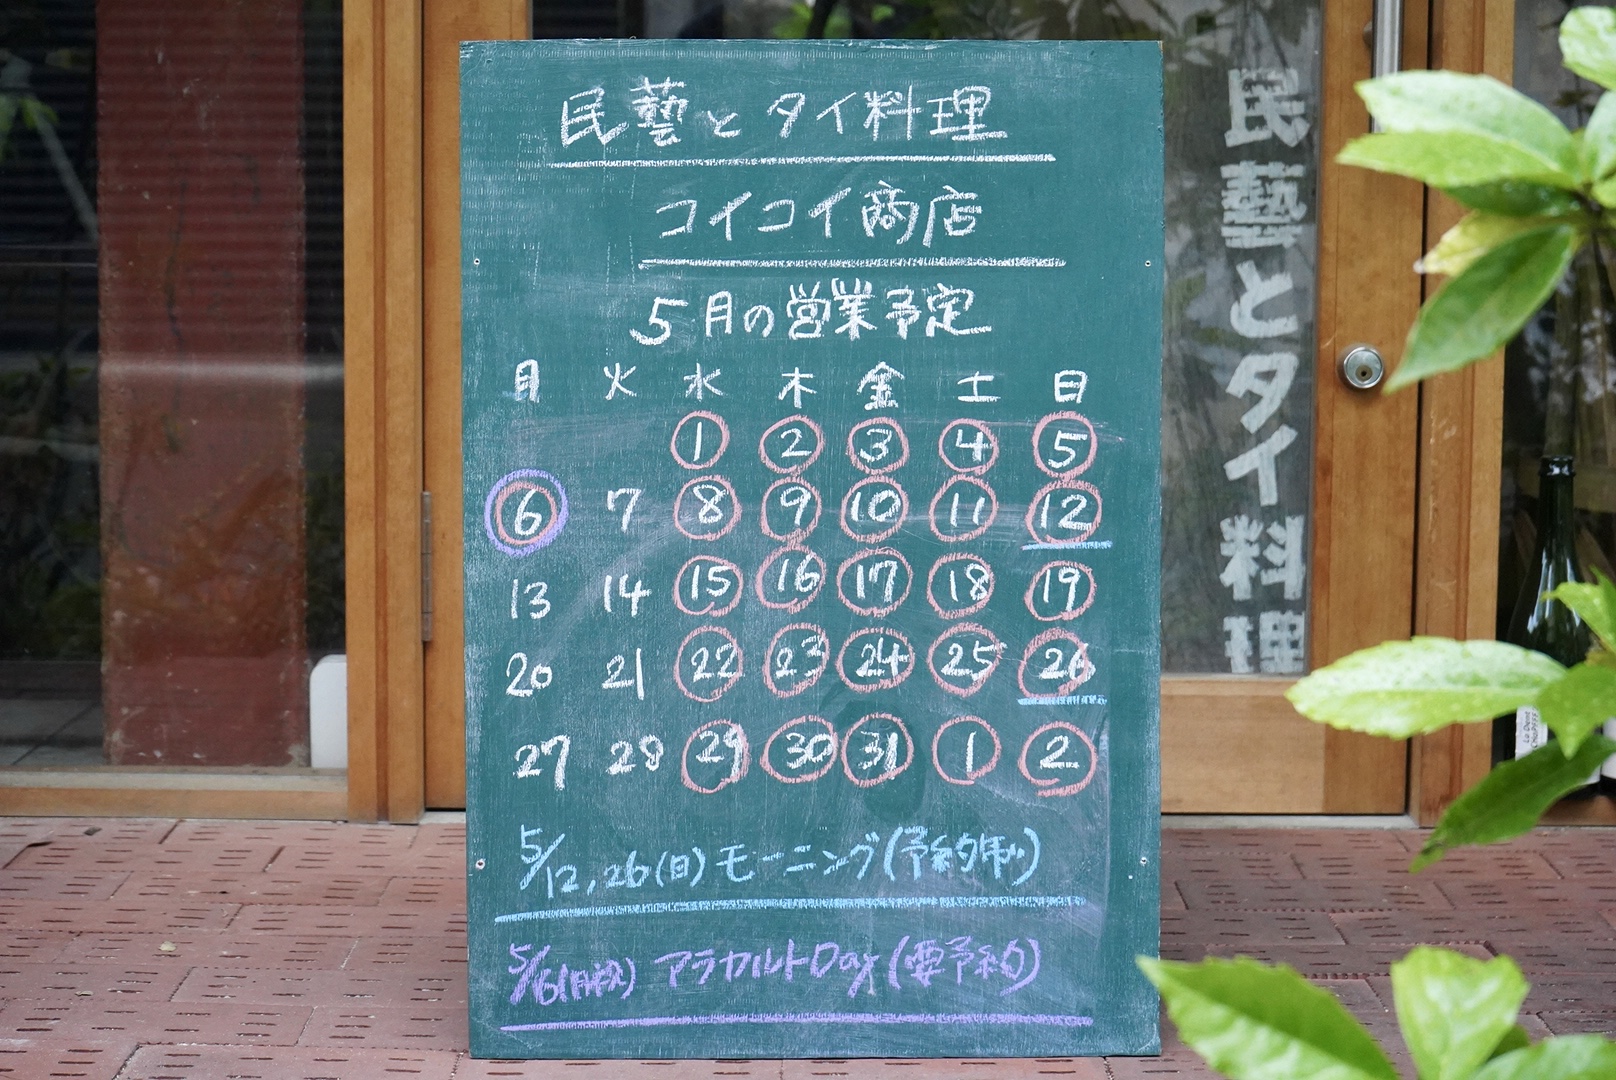 民藝とタイ料理
コイコイ商店
5月の営業予定
月 火 水 木 金 土 日
1 2 3 4 5
6 7 8 9 10 11 12
13 14 15 16 17 18 19
20 21 22 23 24 25 26
27 28 29 30 31 1 2
5/12,26(日)モーニング(予約制)
5/6(月祝) アラカルトDay(要予約)
民藝とタイ料理